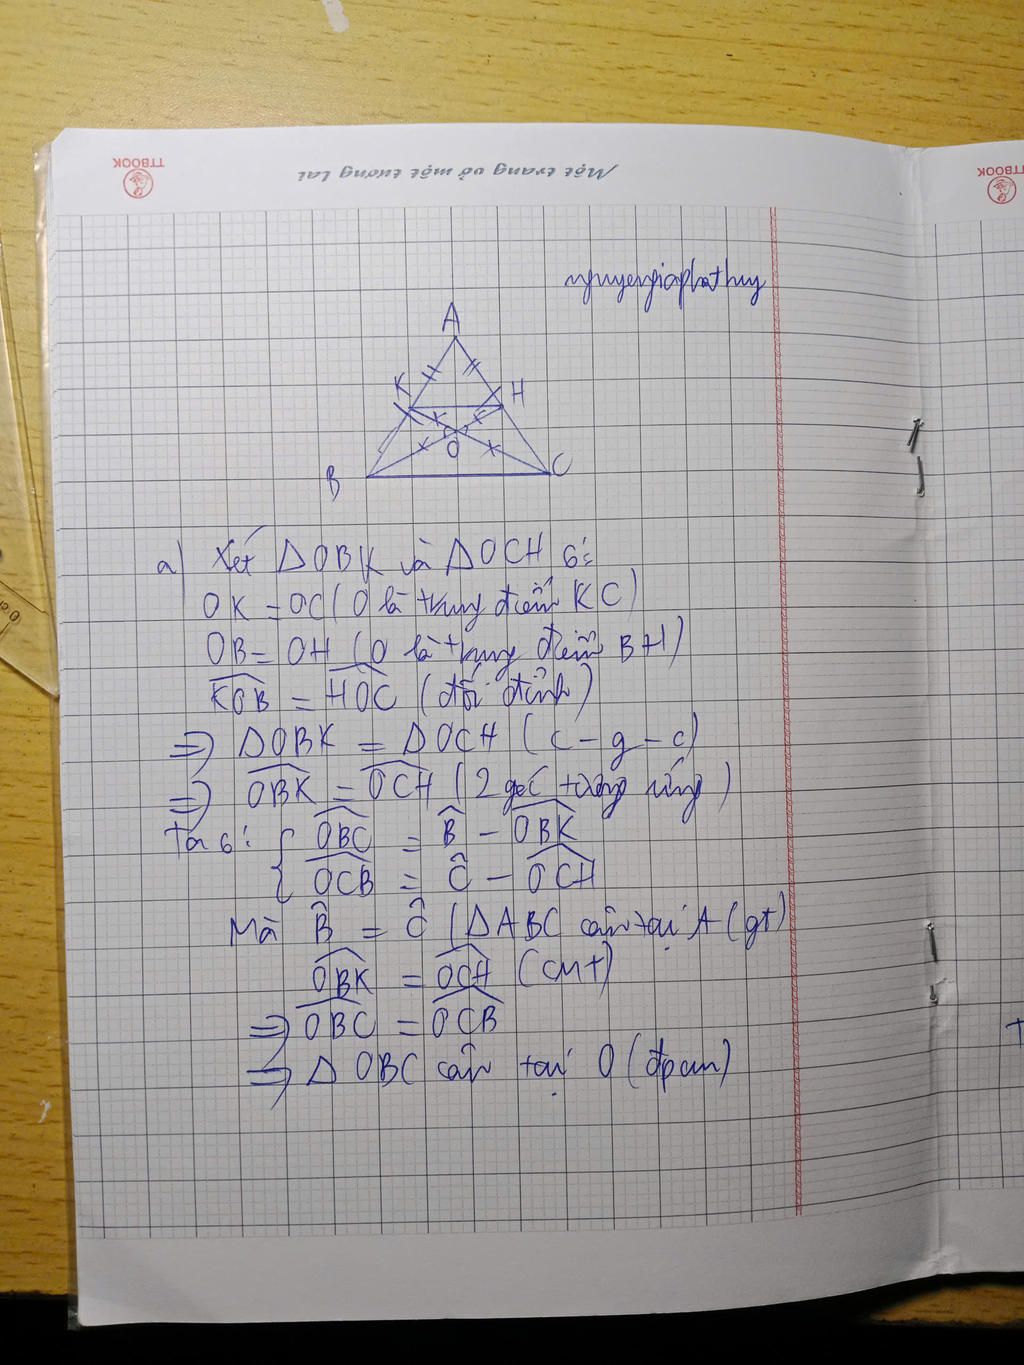 TTBOOK
Một trang vở một tương lai
TTBOOK
nguyengiaphathuy
A
K
H
O
B
C
a) Xét ΔOBK và ΔOCH có:
OK = OC (O là trung điểm KC)
OB = OH (O là trung điểm BH)
KOB = HOC (đối đỉnh)
=> ΔOBK = ΔOCH (c-g-c)
=> OBK = OCH (2 góc tương ứng)
Ta có: { OBC = B̂ - OBK
OCB = Ĉ - OCH
Mà B̂ = Ĉ (ΔABC cân tại A (gt)
OBK = OCH (cmt)
=> OBC = OCB
=> ΔOBC cân tại O (đpcm)